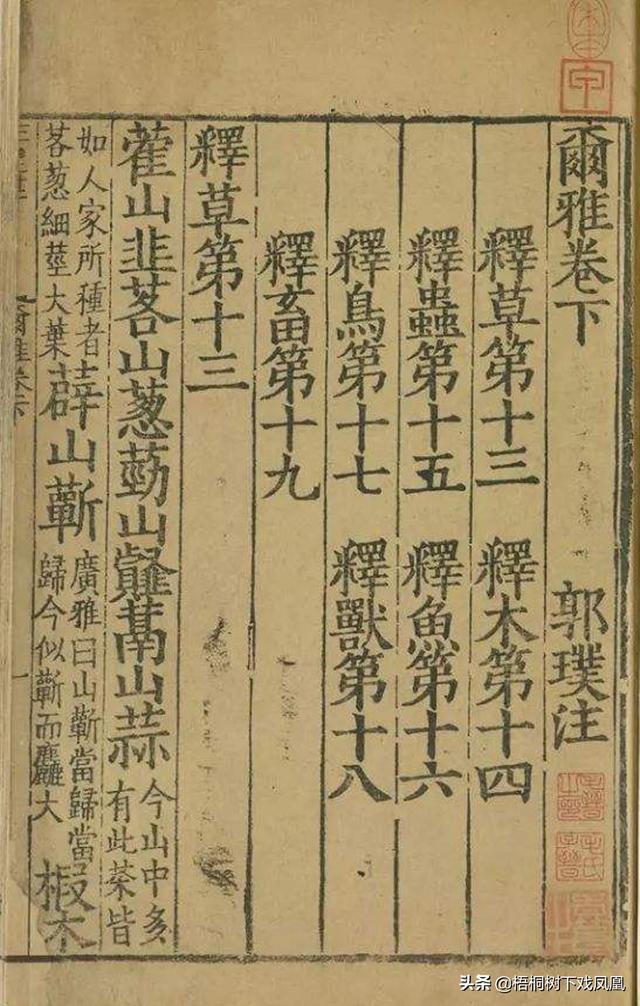 爾雅卷下 郭璞注
釋草第十三 釋木第十四
釋蟲第十五 釋魚第十六
釋鳥第十七 釋獸第十八
釋畜第十九
釋草第十三
藿山韭茖山葱葝山䪥蒚山蒜 今山中多
有此菜皆
如人家所種者
茖葱細莖大葉
薜山蘄
廣雅曰山蘄當歸當
歸今似蘄而麤大
椵木
爾雅卷下
头条 @梧桐树下戏凤凰